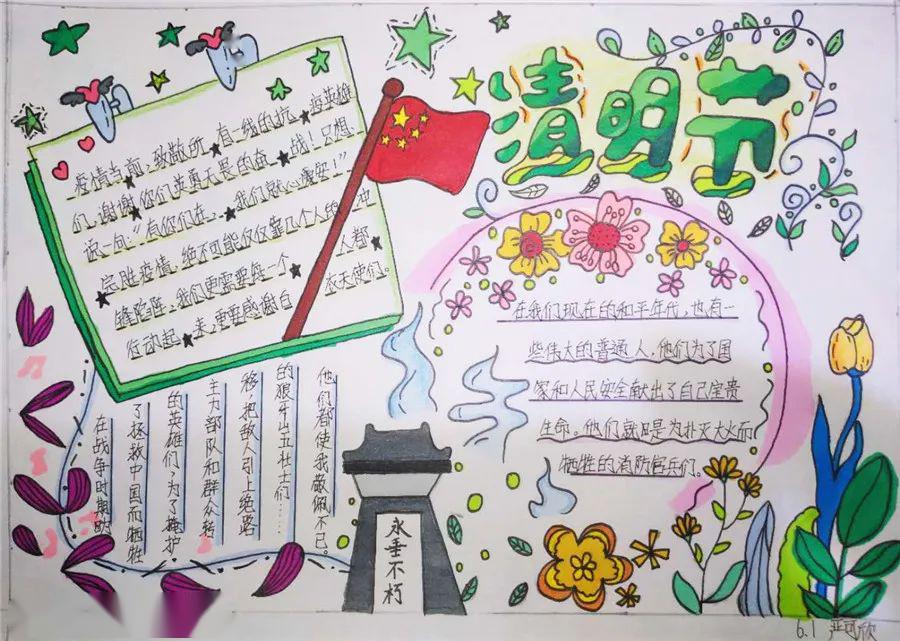 清明节
疫情当前,致敬所有一线的抗疫英雄
们,谢谢你们英勇无畏的奋战!只想
说一句:“有你们在,我们就心爱安!”
完胜疫情,绝不可能仅仅靠几个人的冲
锋陷阵,我们更需要每一个人都
行动起来,更要感谢白衣天使们。
在我们现在的和平年代,也有一
些伟大的普通人,他们为了国
家和人民安全献出了自己宝贵
生命。他们就是为扑灭大火而
牺牲的消防官兵们。
他们都使我敬佩不已。
的狼牙山五壮士们……
移,把敌人引上绝路
主力部队和群众转
的英雄们,为了掩护
了拯救中国而牺牲
在战争时期,
永垂不朽
6.1